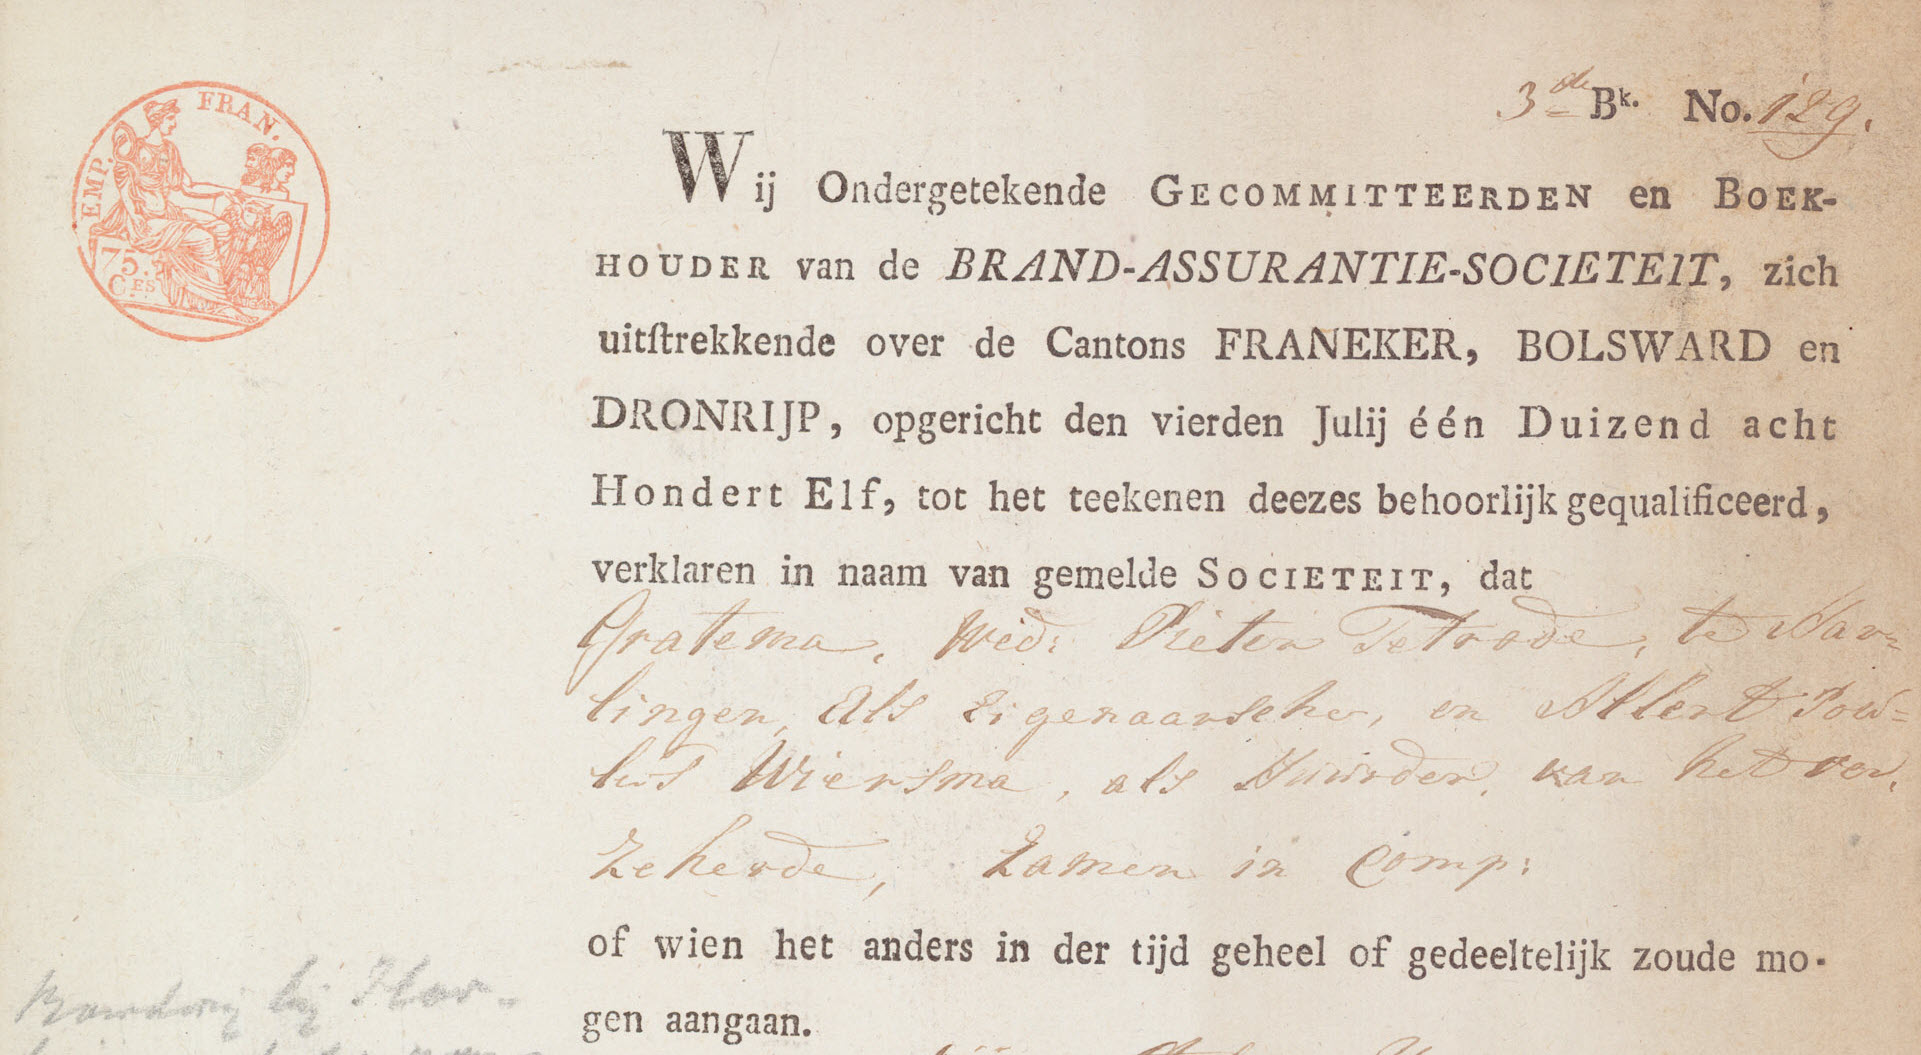 EMP. FRAN.
75. C.ES
3de Bk. No. 129.
Wij Ondergetekende GECOMMITTEERDEN en BOEK-
HOUDER van de BRAND-ASSURANTIE-SOCIETEIT, zich
uitſtrekkende over de Cantons FRANEKER, BOLSWARD en
DRONRIJP, opgericht den vierden Julij één Duizend acht
Hondert Elf, tot het teekenen deezes behoorlijk gequalificeerd,
verklaren in naam van gemelde SOCIETEIT, dat
Gratema, Wed: Pieter Tetrode, te Har=
lingen, als Eigenaarsche, en Allert Pou=
lus Wiersma, als Huurder, van het ver,
zekerde, zamen in Comp:
of wien het anders in der tijd geheel of gedeeltelijk zoude mo-
gen aangaan.
bij Har-